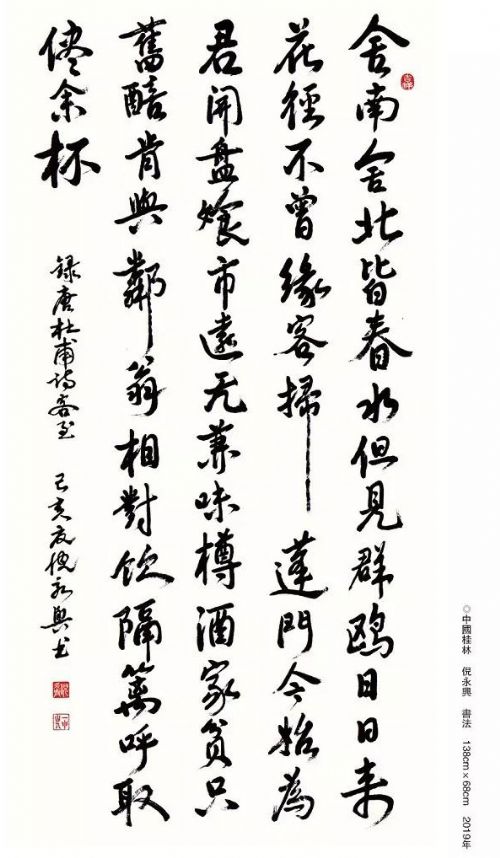 舍南舍北皆春水但見群鸥日日来
花徑不曾缘客掃蓬門今始為
君開盘飧市遠无兼味樽酒家貧只
舊醅肯與鄰翁相對饮隔篱呼取
儘余杯
録唐杜甫诗客至 己亥夏倪永興书
◎中國桂林 倪永興 書法 138cm×68cm 2019年